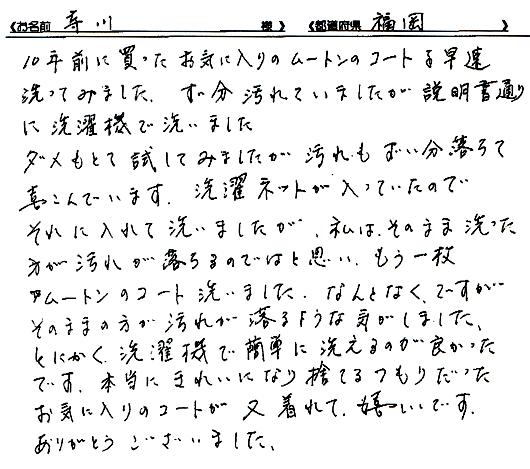 《お名前 寿川 様》 《都道府県 福岡 》
10年前に買ったお気に入りのムートンのコートを早速
洗ってみました。ずい分汚れていましたが説明書通り
に洗濯機で洗いました
ダメもとで試してみましたが汚れもずい分落ちて
喜こんでいます。洗濯ネットが入っていたので
それに入れて洗いましたが、私は、そのまま洗った
方が汚れが落ちるのではと思い、もう一枚
ムートンのコート洗いました。なんとなく、ですが
そのままの方が汚れが落るような気がしました、
とにかく、洗濯機で簡単に洗えるのが良かった
です。本当にきれいになり捨てるつもりだった
お気に入りのコートが又着れて、嬉しいです。
ありがとうございました、